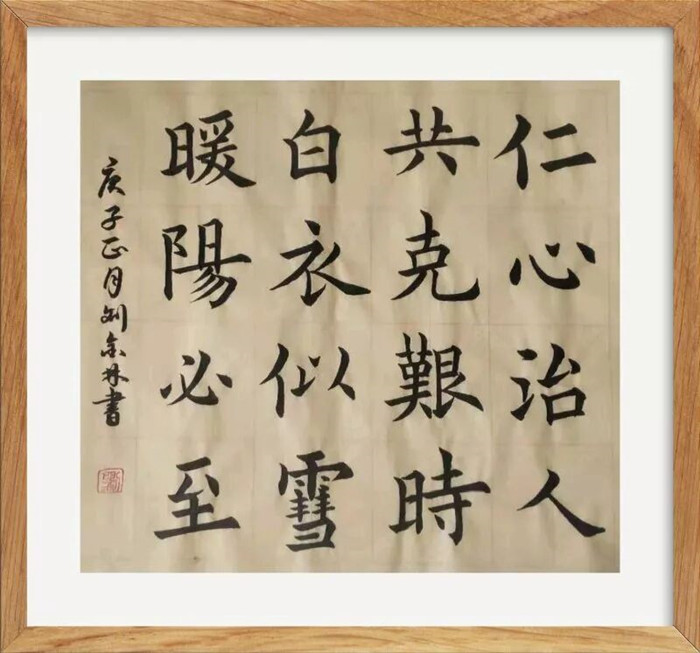 仁心治人
共克艱時
白衣似雪
暖陽必至
庚子正月劉金林書